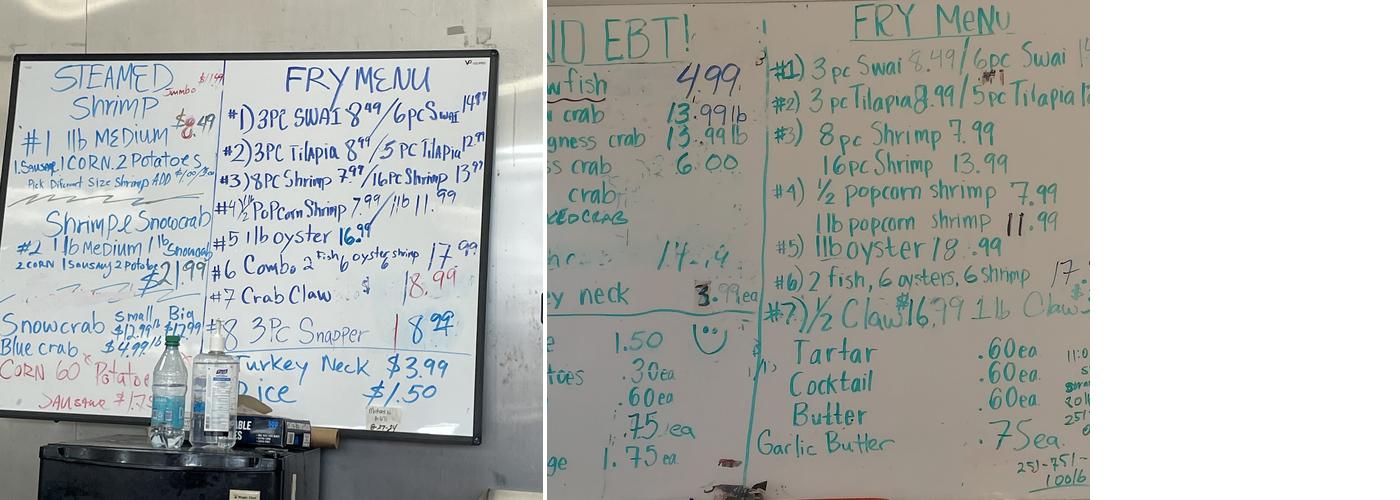 STEAMED
Shrimp
Jumbo $11.99
#1 1lb MEDIUM $8.49
1 Sausage 1 CORN. 2 Potatoes
Pick Different Size Shrimp ADD
Shrimp & Snowcrab
#2 1lb Medium 1lb Snowcrab
2 CORN 1 Sausage 2 Potatoe
$21.99
Small Big
Snowcrab $12.99lb $17.99
Blue crab $4.99lb
CORN 60 Potatoe
SAUSAGE $1.75
FRY MENU
#1) 3PC SWAI 8.49 / 6pc Swai 14.89
#2) 3PC Tilapia 8.99 / 5 PC Tilapia 12.99
#3) 8PC Shrimp 7.99 / 16PC Shrimp 13.99
#4) 1/2 PoPCorn Shrimp 7.99 / 1lb 11.99
#5 1lb oyster 16.99
#6 Combo 2 Fish 6 oyster 6 shrimp 17.99
#7 Crab Claw $ 18.99
#8 3Pc Snapper 18.99
Turkey Neck $3.99
Rice $1.50
NO EBT!
wfish 4.99
crab 13.99lb
gness crab 13.99lb
ss crab 6.00
crab
y neck 3.99ea
1.50
toes .30ea
.60ea
.75 ea
ge 1.75ea
FRY MeNU
#1) 3 pc Swai 8.49 / 6pc Swai
#2) 3 pc Tilapia 8.99 / 5pc Tilapia
#3) 8pc Shrimp 7.99
16pc Shrimp 13.99
#4) 1/2 popcorn shrimp 7.99
1lb popcorn shrimp 11.99
#5) 1lb oyster 18.99
#6) 2 fish, 6 oysters, 6 shrimp 17.
#7) 1/2 Claw $16.99 1lb Claw
Tartar .60ea
Cocktail .60ea
Butter .60ea
Garlic Butter .75ea.
251-751-
100lb